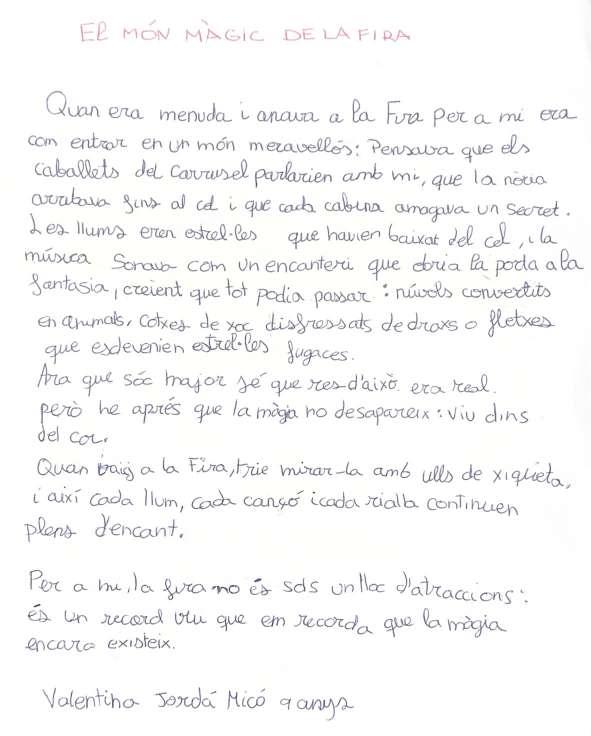 El MÓN MÀGIC DE LA FIRA
Quan era menuda i anava a la Fira per a mi era
com entrar en un món meravellós: Pensava que els
caballets del Carrusel parlarien amb mi, que la nòria
arribava fins al cel i que cada cabina amagava un secret.
Les llums eren estrel·les que havien baixat del cel, i la
música Sonava com un encanteri que obria la porta a la
fantasia, creient que tot podia passar: núvols convertits
en animals, cotxes de xoc disfressats de dracs o fletxes
que esdevenien estrel·les fugaces.
Ara que sóc major sé que res d'això era real.
però he aprés que la màgia no desapareix: viu dins
del cor.
Quan vaig a la Fira, trie mirar-la amb ulls de xiqueta,
i així cada llum, cada cançó i cada rialla continuen
plens d'encant.
Per a mi, la fira no és sols un lloc d'atraccions:
és un record viu que em recorda que la màgia
encara existeix.
Valentina Jordá Micó 9 anys